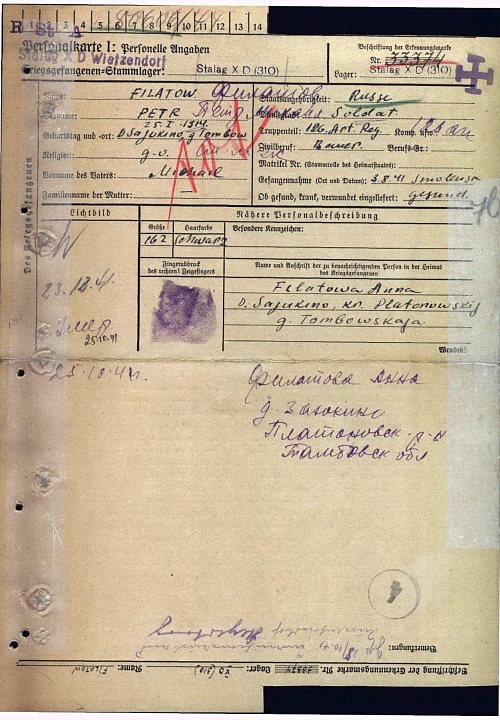 1 2 3 4 5 6 7 8 9 10 11 12 13 14
R St A
Personalkarte I: Personelle Angaben
Beschriftung der Erkennungsmarke
Stalag X D Wietzendorf
Nr. 33374
Kriegsgefangenen-Stammlager: Stalag X D (310)
Lager: Stalag X D (310)
Des Kriegsgefangenen
Name: FILATOW Филатов
Staatsangehörigkeit: Russe
PETR Петр
Dienstgrad: Soldat
Truppenteil: 126. Art. Reg. Komp. usw.:
Geburtstag und -ort: D Sajukino g. Tombow
Zivilberuf: Bauer Berufs-Gr.:
Religion: g.o.
Matrikel Nr. (Stammrolle des Heimatstaates):
Vorname des Vaters: Michael
Gefangennahme (Ort und Datum): 3.8.41 Smolensk
Familienname der Mutter: —
Ob gesund, krank, verwundet eingeliefert: gesund.
Lichtbild
Nähere Personalbeschreibung
Größe
Haarfarbe
Besondere Kennzeichen:
162
schwarz
Fingerabdruck
des rechten! Zeigefingers
Name und Anschrift der zu benachrichtigenden Person in der Heimat
des Kriegsgefangenen
Filatowa Anna
D. Sajukino, kr. Platonowskij
g. Tombowskaja.
Wenden!
23.12.41.
Умер
25.10.41
25.10.41г.
Филатова Анна
д. Заюкино
Платоновск. р-н
Тамбовск обл
4
Bemerkungen:
Beschriftung der Erkennungsmarke Nr. 33374 Lager: X D (310) Name: FILATOW